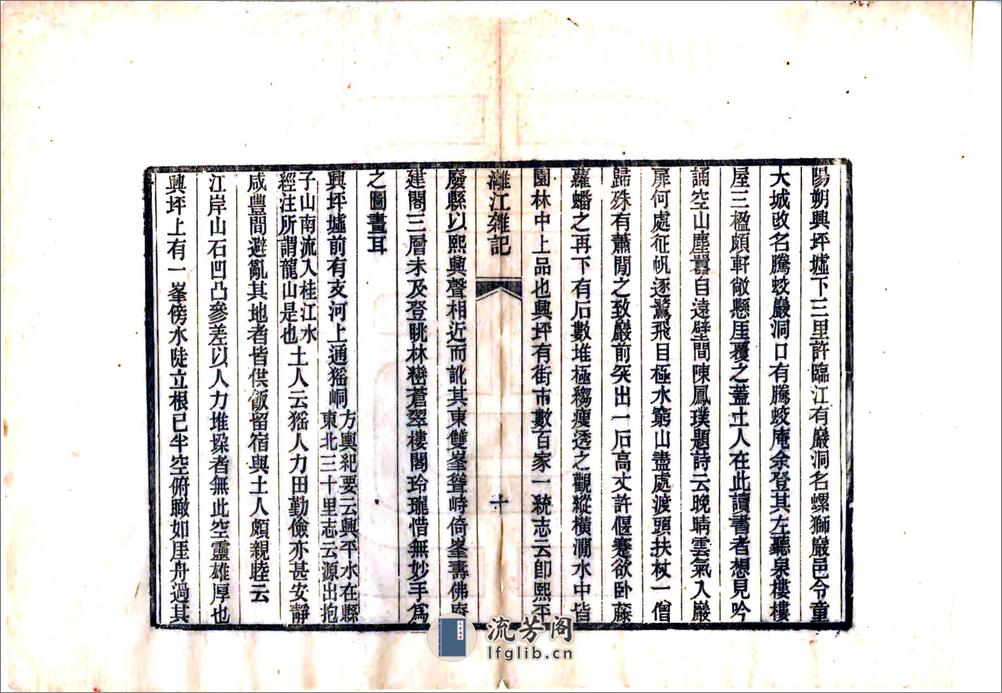 陽朔興坪墟下三里許臨江有巖洞名螺獅巖邑令童
大城改名騰蛟巖洞口有騰蛟庵余登其左聽泉樓樓
屋三楹頗軒敞懸厓覆之蓋土人在此讀書者想見吟
誦空山塵囂自遠壁間陳鳳璞題詩云晚晴雲氣入巖
扉何處征帆逐鷺飛目極水窮山盡處渡頭扶杖一僧
歸殊有蕭閒之致巖前突出一石高丈許偃蹇欲卧藤
蘿蟠之再下有石數堆極縐瘦透之觀縱橫澗水中皆
園林中上品也興坪有街市數百家一統志云卽熙平
灕江雜記
十
廢縣以熙興聲相近而訛其東雙峯聳峙倚峯壽佛庵
建閣三層未及登眺林巒蒼翠樓閣玲瓏惜無妙手爲
之圖畫耳
興坪墟前有支河上通猺峒方輿紀要云興平水在縣
東北三十里志云源出抱
子山南流入桂江水
經注所謂龍山是也土人云猺人力田勤儉亦甚安靜
咸豐間避亂其地者皆供飯留宿與土人頗親睦云
江岸山石凹凸參差以人力堆垜者無此空靈雄厚也
興坪上有一峯傍水陡立根已半空俯瞰如厓舟過其
流芳阁
lfglib.cn